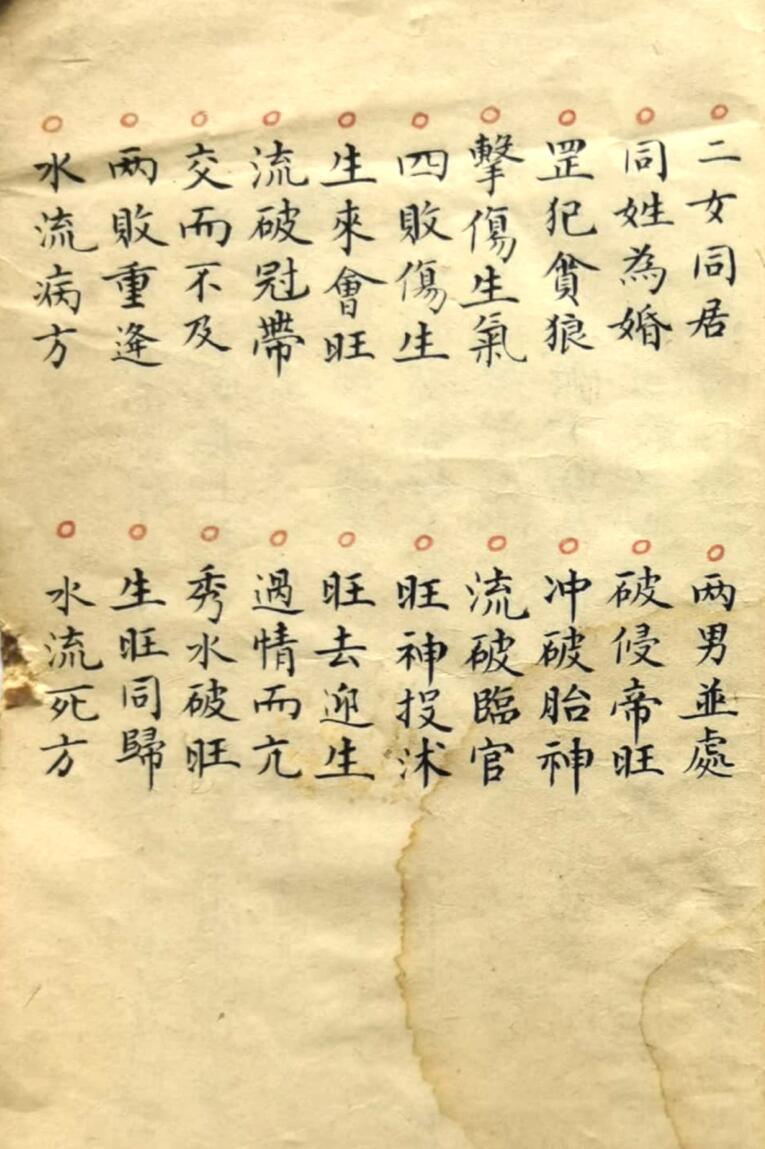 二女同居
两男並處
同姓為婚
破侵帝旺
罡犯貪狼
冲破胎神
擊傷生氣
流破臨官
四敗傷生
旺神投沭
生來會旺
旺去迎生
流破冠帶
過情而亢
交而不及
秀水破旺
两敗重逢
生旺同歸
水流病方
水流死方